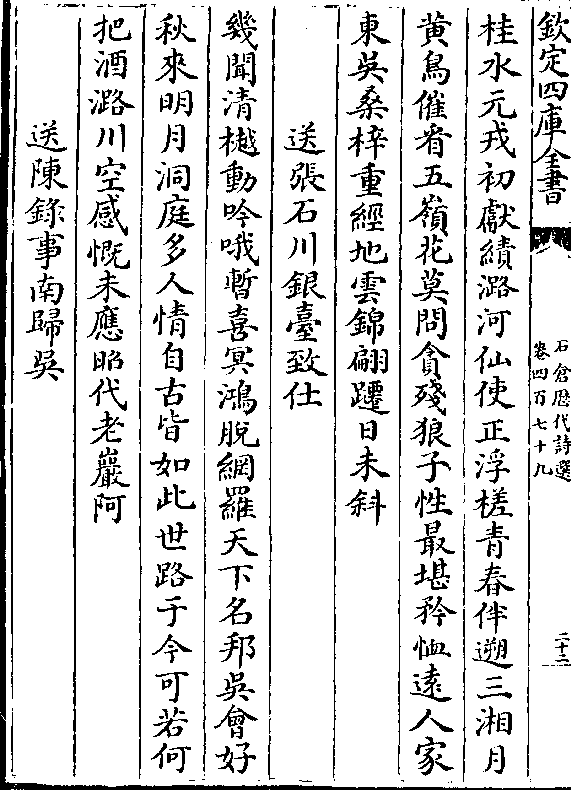 欽定四庫全書
石倉歷代詩選
卷四百七十九
二十二
桂水元戎初獻績潞河仙使正浮槎青春伴遡三湘月
黃鳥催看五嶺花莫問貪殘狼子性最堪矜恤遠人家
東吳桑梓重經地雲錦翩躚日未斜
送張石川銀臺致仕
幾聞清樾動吟哦暫喜冥鴻脫網羅天下名邦吳會好
秋來明月洞庭多人情自古皆如此世路于今可若何
把酒潞川空感慨未應昭代老巖阿
送陳錄事南歸吳